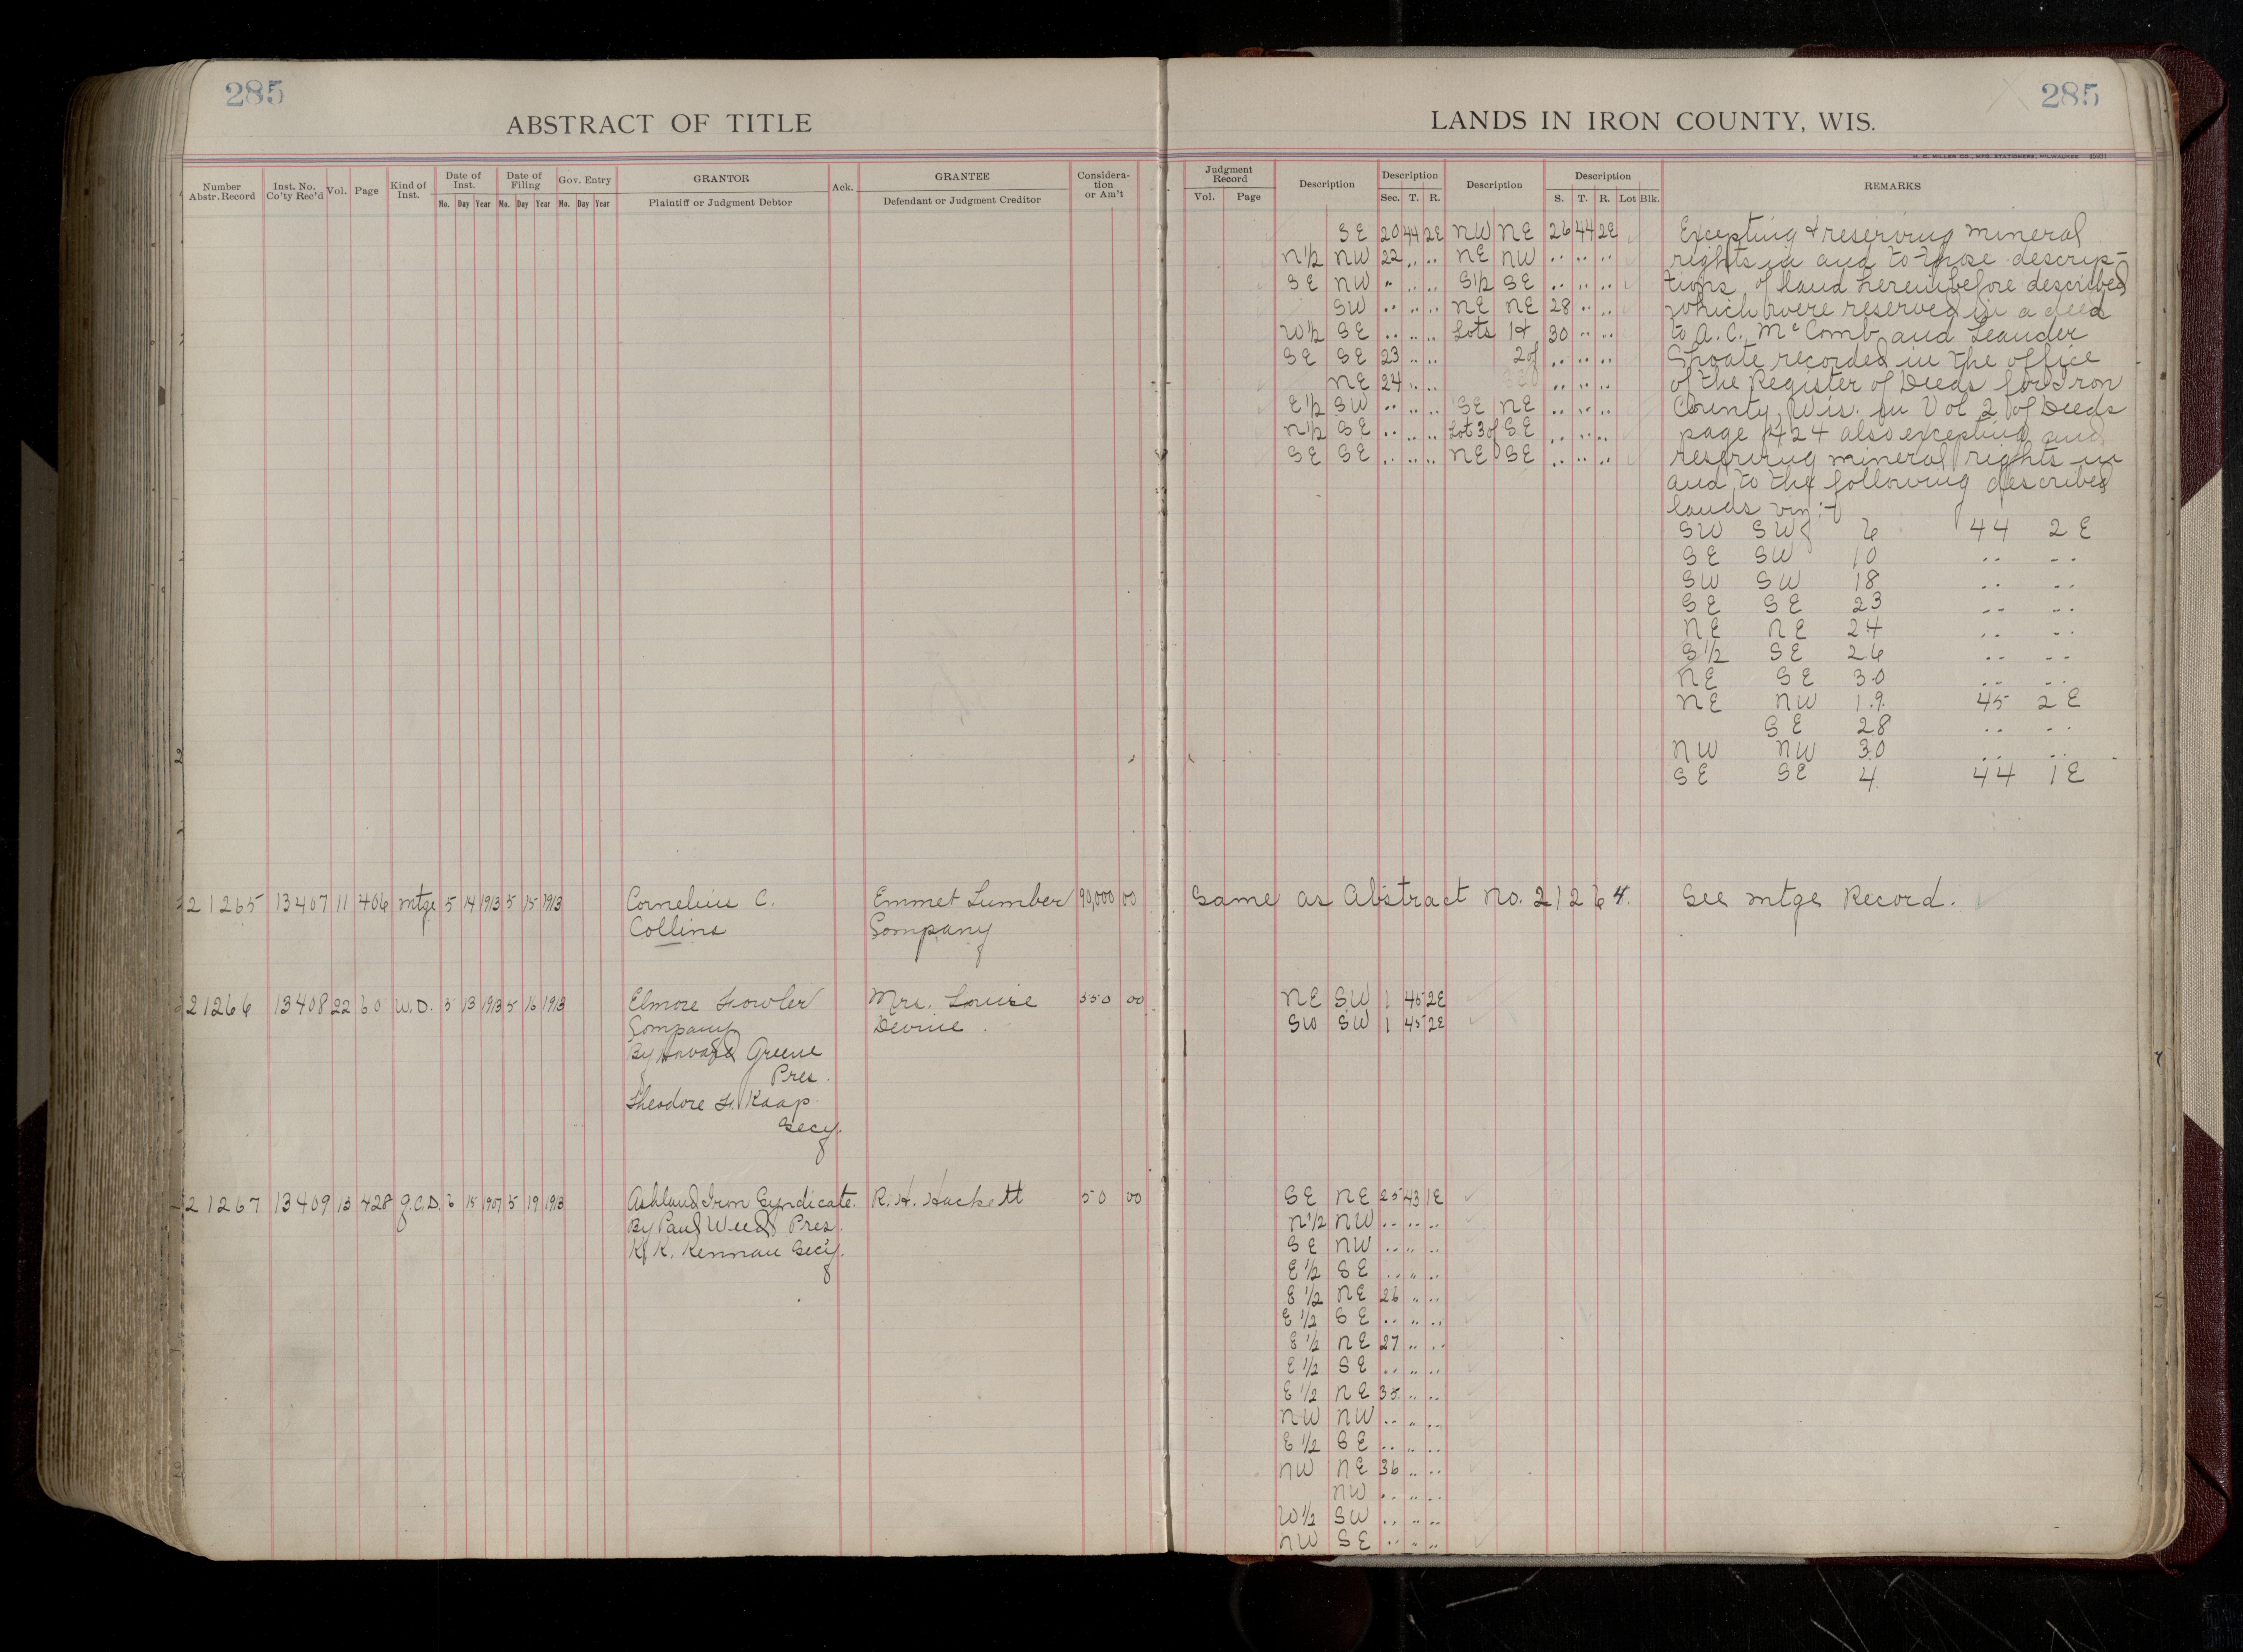 285
285
ABSTRACT OF TITLE
LANDS IN IRON COUNTY, WIS.
H. C. MILLER CO., MFG. STATIONERS, MILWAUKEE
Number Abstr. Record Inst. No. Co'ty Rec'd Vol. Page Kind of Inst. Date of Inst. Date of Filing Gov. Entry GRANTOR Ack. GRANTEE Considera-tion or Am't
Mo. Day Year Mo. Day Year Mo. Day Year Plaintiff or Judgment Debtor Defendant or Judgment Creditor
Judgment Record Description Description Description Description REMARKS
Vol. Page Sec. T. R. S. T. R. Lot Blk.
SE 20 44 2E NW NE 26 44 2E
N½ NW 22 .. .. NE NW .. .. ..
SE NW .. .. .. S½ SE .. .. ..
SW .. .. .. NE NE 28 .. ..
W½ SE .. .. .. Lots 1+ 30 .. ..
SE SE 23 .. .. 2 of .. .. ..
NE 24 .. .. .. .. ..
E½ SW .. .. .. SE NE .. .. ..
N½ SE .. .. .. Lot 3 of SE .. .. ..
SE SE .. .. .. NE SE .. .. ..
Excepting & reserving mineral
rights in and to those descrip-
tions of land hereinbefore described
which were reserved in a deed
to A. C. McComb and Leander
Choate recorded in the office
of the Register of Deeds for Iron
County, Wis. in Vol 2 of Deeds
page 424 also excepting and
reserving mineral rights in
and to the following described
lands viz:-
SW SW 6 44 2 E
SE SW 10 .. ..
SW SW 18 .. ..
SE SE 23 .. ..
NE NE 24 .. ..
S½ SE 26 .. ..
NE SE 30 .. ..
NE NW 19 45 2 E
SE 28 .. ..
NW NW 30 .. ..
SE SE 4 44 1 E
21265 13407 11 406 Mtge 5 14 1913 5 15 1913 Cornelius C. Emmet Lumber 90,000 00 Same as Abstract No. 21264. See Mtge Record.
Collins Company
21266 13408 22 60 W.D. 5 13 1913 5 16 1913 Elmore Fowler Mrs. Louise 550 00 NE SW 1 45 2E
Company Devine. SW SW 1 45 2E
By Howard Greene
Pres.
Theodore F. Kaap
Secy.
21267 13409 13 428 Q.C.D. 6 15 1907 5 19 1913 Ashland Iron Syndicate. R. H. Hackett 50 00 SE NE 25 43 1E
By Paul Weed Pres. N½ NW .. .. ..
K. K. Kennan Secy. SE NW .. .. ..
E½ SE .. .. ..
E½ NE 26 .. ..
E½ SE .. .. ..
E½ NE 27 .. ..
E½ SE .. .. ..
E½ NE 35 .. ..
NW NW .. .. ..
E½ SE .. .. ..
NW NE 36 .. ..
NW .. .. ..
W½ SW .. .. ..
NW SE .. .. ..